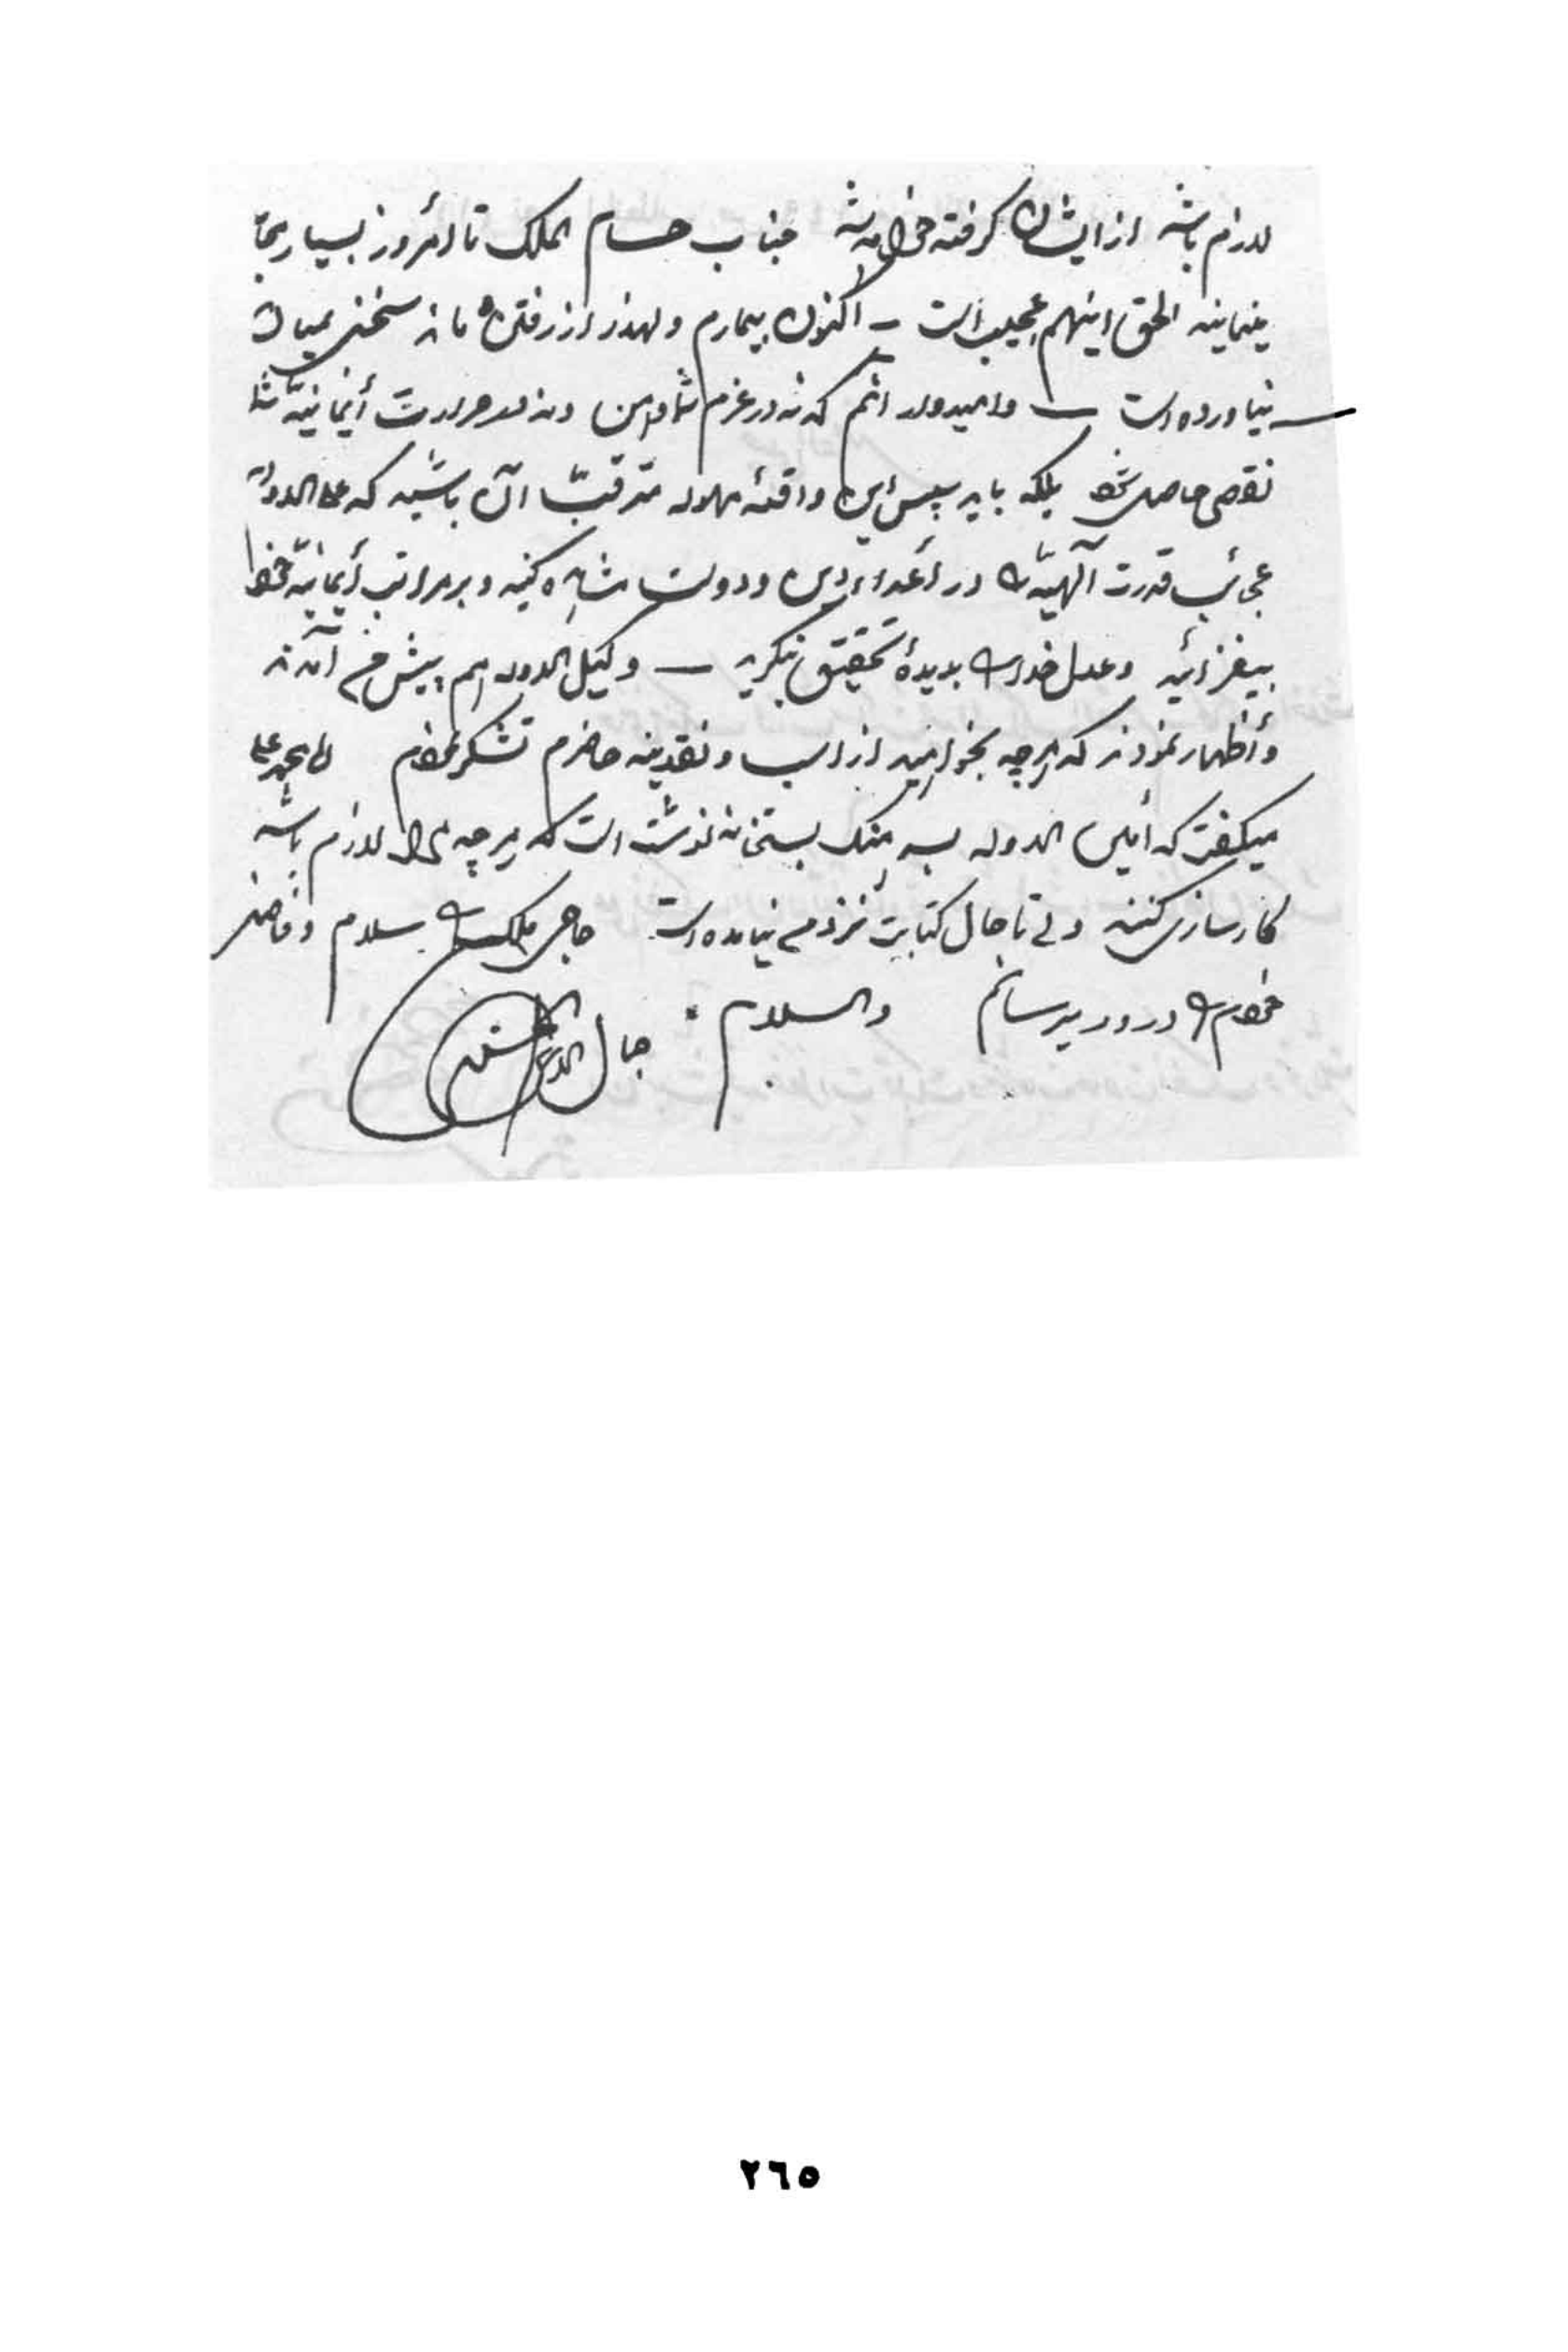 لازم باشد از ایشان گرفته خواهد شد جناب حسام الملک تا امروز بسیار
مینمایند الحق اینهم عجیب است – اکنون بیمارم و هنوز از رفتن ما نه سخنی بمیان
نیاورده است – و امیدوار انم که نه در عزم شما وهن و نه در حرارت أیمانیّه شما
نقصی حاصل شود بلکه باید پس این واقعه هوله مترقبّ آن باشید که علی الدوام
عجائب قدرت آلهیّه را در أعداء دین و دولت مشاهده کنید و بر مراتب أیمانیّه خود
بیفزائید و عدل خدا را بدیدهٔ تحقیق بنگرید – وکیل الدوله هم پیش من آمدند
و أظهار نمودند که هرچه بخواهید از اسب و نقدینه حاضرم تشکر نمودم محمد علی
میگفت که أمین الدوله به بستخانه نوشته است که هرچه لازم باشد
کارسازی کنند ولی تا حال کتابت نزدم نیامده است حاجی ملک را سلام و فاضل
درود میرسانم والسلام
جمال الدین الحسینی
٢٦٥